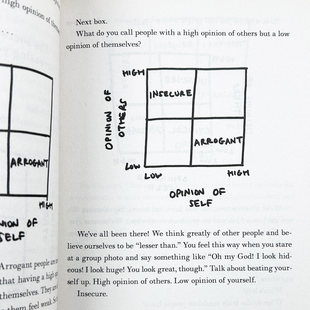 ARROGANT
HIGH
OF
SELF
Arrogant people are
that having a high
themselves. They
them feel weak. So
Next box.
What do you call people with a high opinion of others but a low
opinion of themselves?
HIGH
INSECURE
OPINION OF
OTHERS
ARROGANT
LOW
LOW
HIGH
OPINION OF
SELF
We've all been there! We think greatly of other people and be-
lieve ourselves to be “lesser than.” You feel this way when you stare
at a group photo and say something like “Oh my God! I look hid-
eous! I look huge! You look great, though.” Talk about beating your-
self up. High opinion of others. Low opinion of yourself.
Insecure.